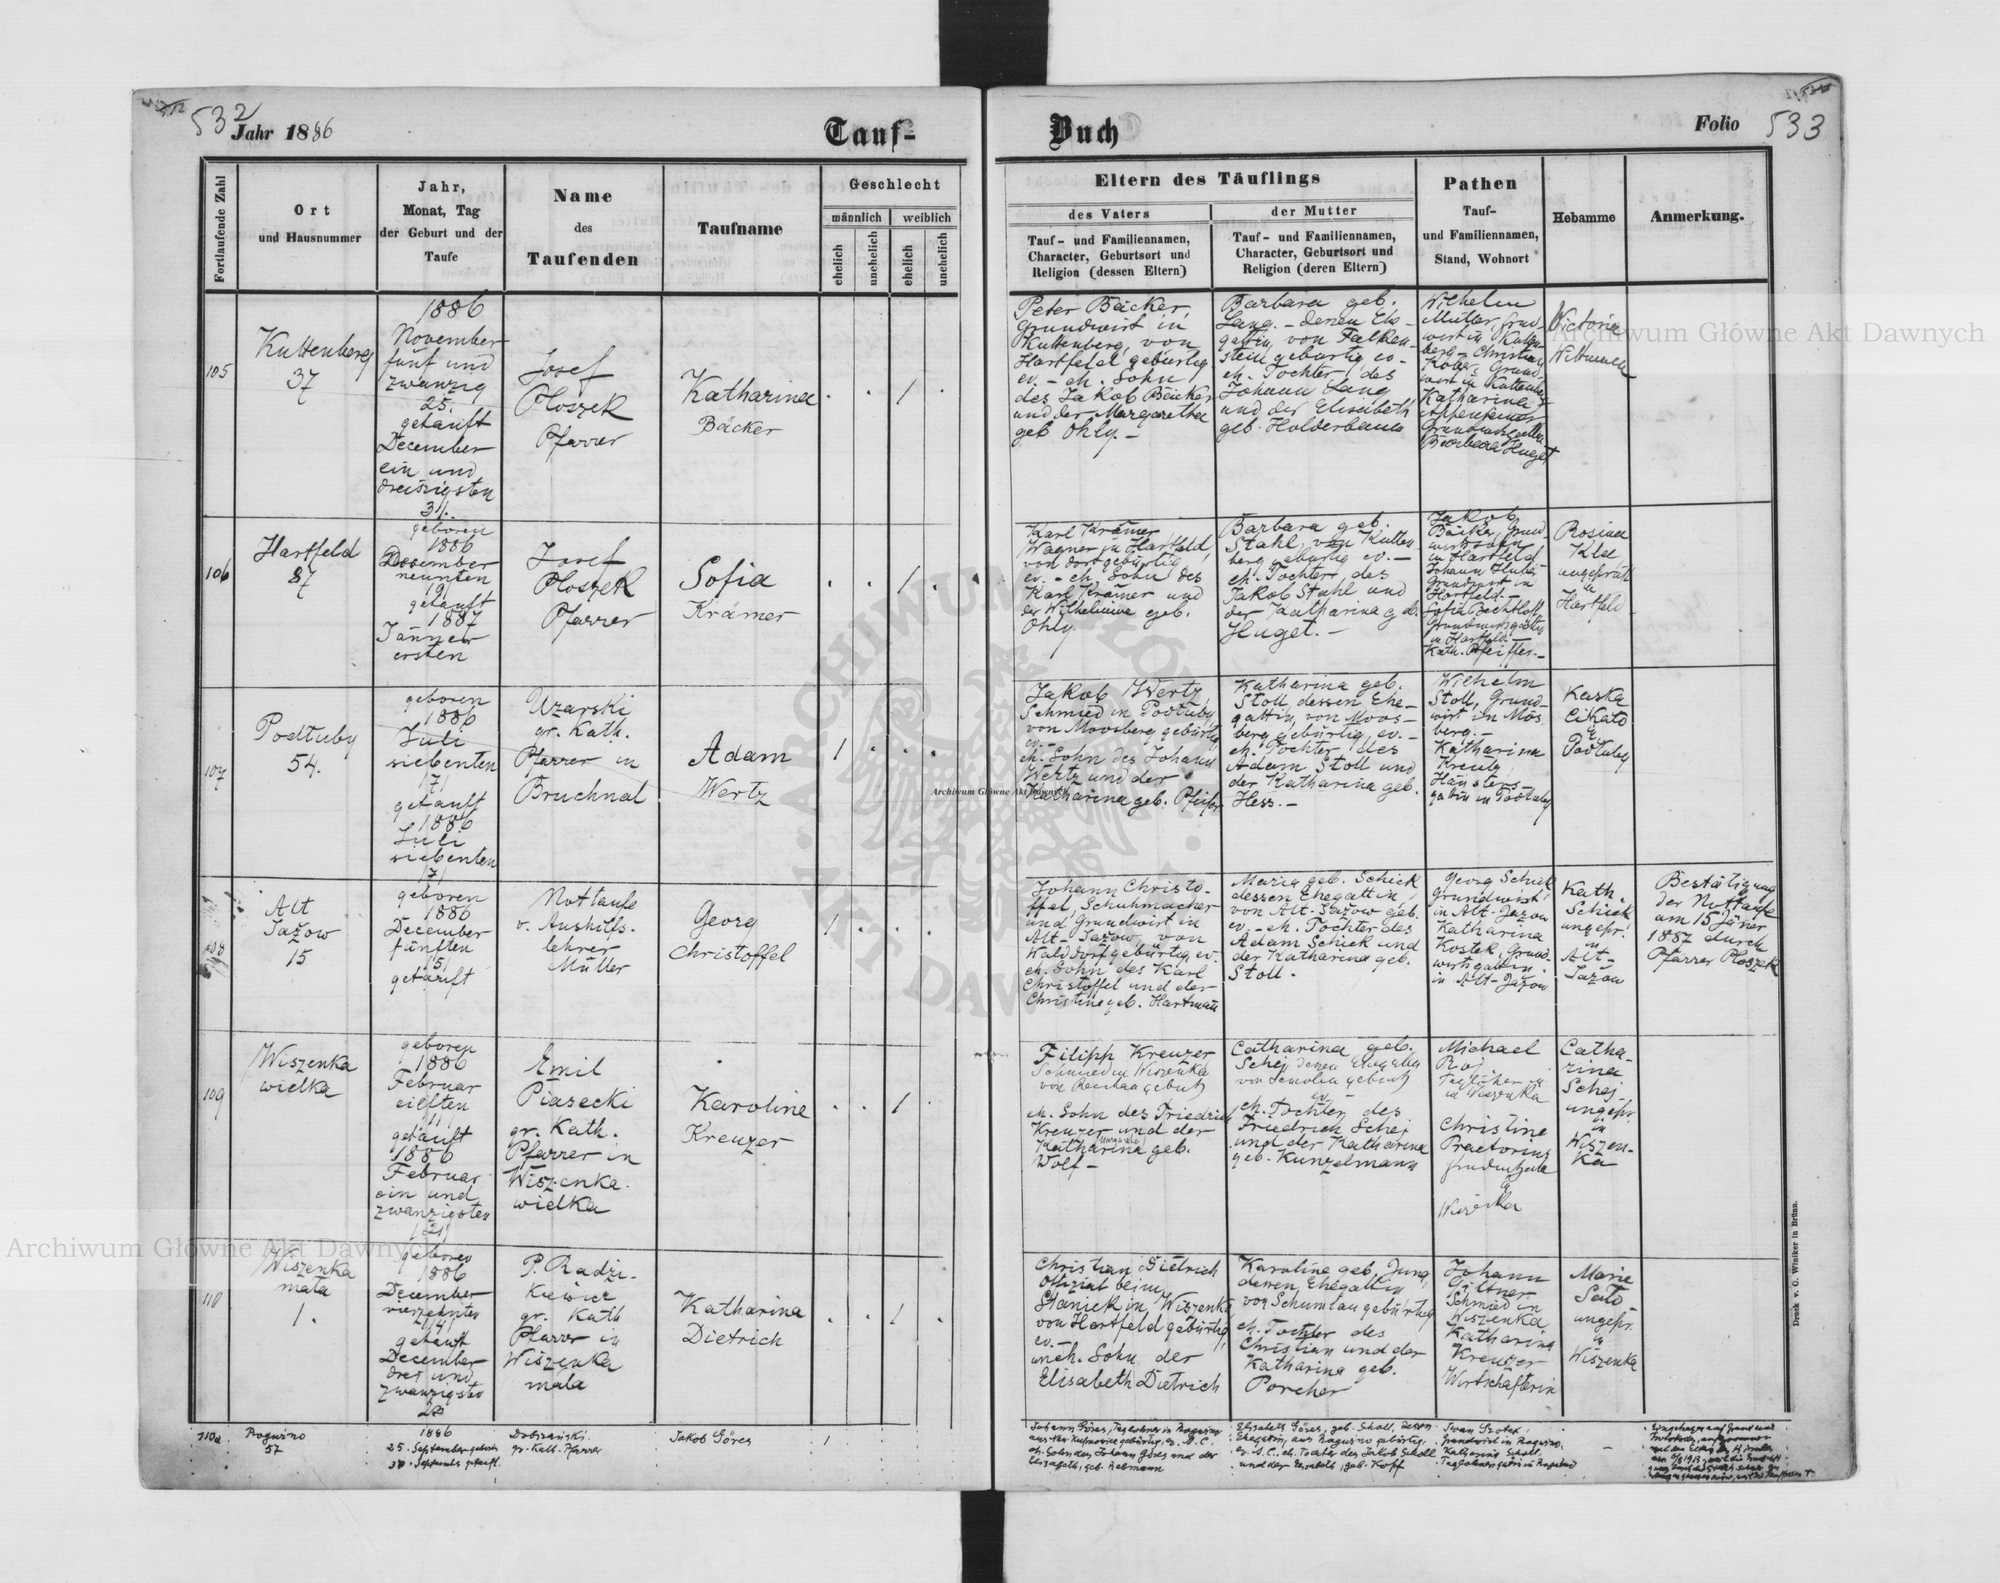 532
Jahr 1886
Tauf-
Buch
Folio 533
Fortlaufende Zahl
Ort
und Hausnummer
Jahr,
Monat, Tag
der Geburt und der
Taufe
Name
des
Taufenden
Taufname
Geschlecht
männlich
weiblich
ehelich
unehelich
ehelich
unehelich
Eltern des Täuflings
des Vaters
Tauf- und Familiennamen,
Character, Geburtsort und
Religion (dessen Eltern)
der Mutter
Tauf- und Familiennamen,
Character, Geburtsort und
Religion (deren Eltern)
Pathen
Tauf-
und Familiennamen,
Stand, Wohnort
Hebamme
Anmerkung.
105
Kuttenberg
37
1886
November
fünf und
zwanzig
25.
getauft
December
ein und
dreiszigsten
31.
Josef
Ploszek
Pfarrer
Katharina
Bäcker
. . 1 .
Peter Bäcker,
Grundwirt in
Kuttenberg, von
Hartfeld gebürtig
ev. - eh. Sohn,
des Jakob Bäcker
und der Margaretha
geb Ohly. -
Barbara geb.
Lang. - denen Ehe-
gattin, von Falken-
stein gebürtig ev.-
eh. Tochter des
Johann Lang
und der Elisabeth
geb. Holderbaum
Wilhelm
Müller, Grund-
wirt in Kutten-
berg - Christian
Grund-
wirt in Kuttenberg
Katharina
Barbara Huget
Victoria
106
Hartfeld
87
geboren
1886
December
neunten
19/
getauft
1887
Jänner
ersten
Josef
Ploszek
Pfarrer
Sofia
Krämer
. . 1 .
Karl Krämer
Wagner in Hartfeld,
von dort gebürtig
ev. - eh. Sohn des
Karl Krämer und
der Wilhelmine geb.
Ohly.
Barbara geb.
Stahl, von Kutten-
berg gebürtig ev. -
eh. Tochter des
Jakob Stahl und
der Katharina geb.
Huget. -
Jakob
Bäcker, Grund-
wirtssohn
in Hartfeld
Johann Huber
Grundwirt in
Hartfeld. -
Sofia Bechtloff
Grundwirtsgattin
in Hartfeld. -
Kath. Pfeiffer. -
Rosina
Klee
ungeprüft
in
Hartfeld.
107
Podtuby
54.
geboren
1886
Juli
siebenten
/7/
getauft
1886
Juli
siebenten
/7/
Uzarski
gr. Kath.
Pfarrer in
Bruchnal
Adam
Wertz
1 . . .
Jakob Wertz,
Schmied in Podtuby,
von Moosberg gebürtig
ev. -
eh. Sohn des Johann
Wertz und der
Katharina geb. Pfeifer
Katharina geb.
Stoll, dessen Ehe-
gattin, von Moos-
berg gebürtig, ev. -
eh. Tochter des
Adam Stoll und
der Katharina geb.
Hess. -
Wilhelm
Stoll, Grund-
wirt in Mos
berg. -
Katharina
Kreutz
Häuslers-
gattin in Podtuby
Kaska
Cikato
in
Podtuby
108
Alt
Jažow
15
geboren
1886
December
fünften
/5/
getauft
Nottaufe
v. Aushilfs-
lehrer
Müller
Georg
Christoffel
1 . . .
Johann Christo-
ffel, Schuhmacher
und Grundwirt in
Alt-Jažow von
Walddorf gebürtig ev.
eh. Sohn des Karl
Christoffel und der
Christine geb. Hartmann
Maria geb. Schick
dessen Ehegattin,
von Alt-Jažow geb.
ev. - eh. Tochter des
Adam Schick und
der Katharina geb.
Stoll.
Georg Schick
Grundwirt
in Alt-Jažow
Katharina
Kostek, Grund-
wirtsgattin
in Alt-Jažow
Kath.
Schick
ungepr.
in
Alt-
Jažow
Bestätigung
der Nottaufe
am 15 Jäner
1887 durch
Pfarrer Ploszek
109
Wiszenka
wielka
geboren
1886
Februar
eilften
/11/
getauft
1886
Februar
ein und
zwanzigsten
/21/
Emil
Piasecki
gr. Kath.
Pfarrer in
Wiszenka
wielka
Karoline
Kreuzer
. . 1 .
Filipp Kreuzer
Schmied in Wiszenka
von Reichau gebürt.
eh. Sohn des Friedrich
Kreuzer und der
Katharina (Margareta) geb.
Wolf -
Catharina geb.
Schej denen Ehegattin
ev. -
eh. Tochter des
Friedrich Schej
und der Katharina
geb. Kunzelmann
Michael
Roj
in Wiszenka
Christine
Praetorius
in
Wiszenka
Catha-
rina
Schej
ungepr.
in
Wiszen-
ka
110
Wiszenka
mała
1.
geboren
1886
December
vierzehnten
/14/
getauft
December
drei und
zwanzigsten
23
P. Radzi-
kiewicz
gr. Kath
Pfarrer in
Wiszenka
mała
Katharina
Dietrich
. . 1 .
Christian Dietrich
Offizial beim
Stanick in Wiszenka
von Hartfeld gebürtig,
ev. -
uneh. Sohn der
Elisabeth Dietrich
Karoline geb. Jung,
denen Ehegattin,
von Schumlau gebürtig
eh. Tochter des
Christian und der
Katharina geb.
Porcher
Johann
Giltner
Schmied in
Wiszenka
Katharina
Kreuzer
Wirtschafterin
Marie
Sato
ungepr.
in
Wiszenka
110a
Rogwino
57
1886
25. September geboren
30 September getauft
Dobrzański
gr. Kath. Pfarrer
Jakob Göres
1
Johann Göres, Taglöhner in Rogwino
eh. Sohn des Johann Göres und der
Elisabeth, geb. Redmann
Elisabeth Göres, geb. Scholl, dessen
Ehegattin, aus Rogwino gebürtig,
ev. A.C. eh. Tochter des Jakob Scholl
und der Elisabeth, geb. Kopf
Grundwirt in Rogwino
Katharina Scholl,
Taglöhnersgattin in Rogwino
-
Druck v. G. Winiker in Brünn.
Archiwum Główne Akt Dawnych
Archiwum Główne Akt Dawnych
Archiwum Główne Akt Dawnych